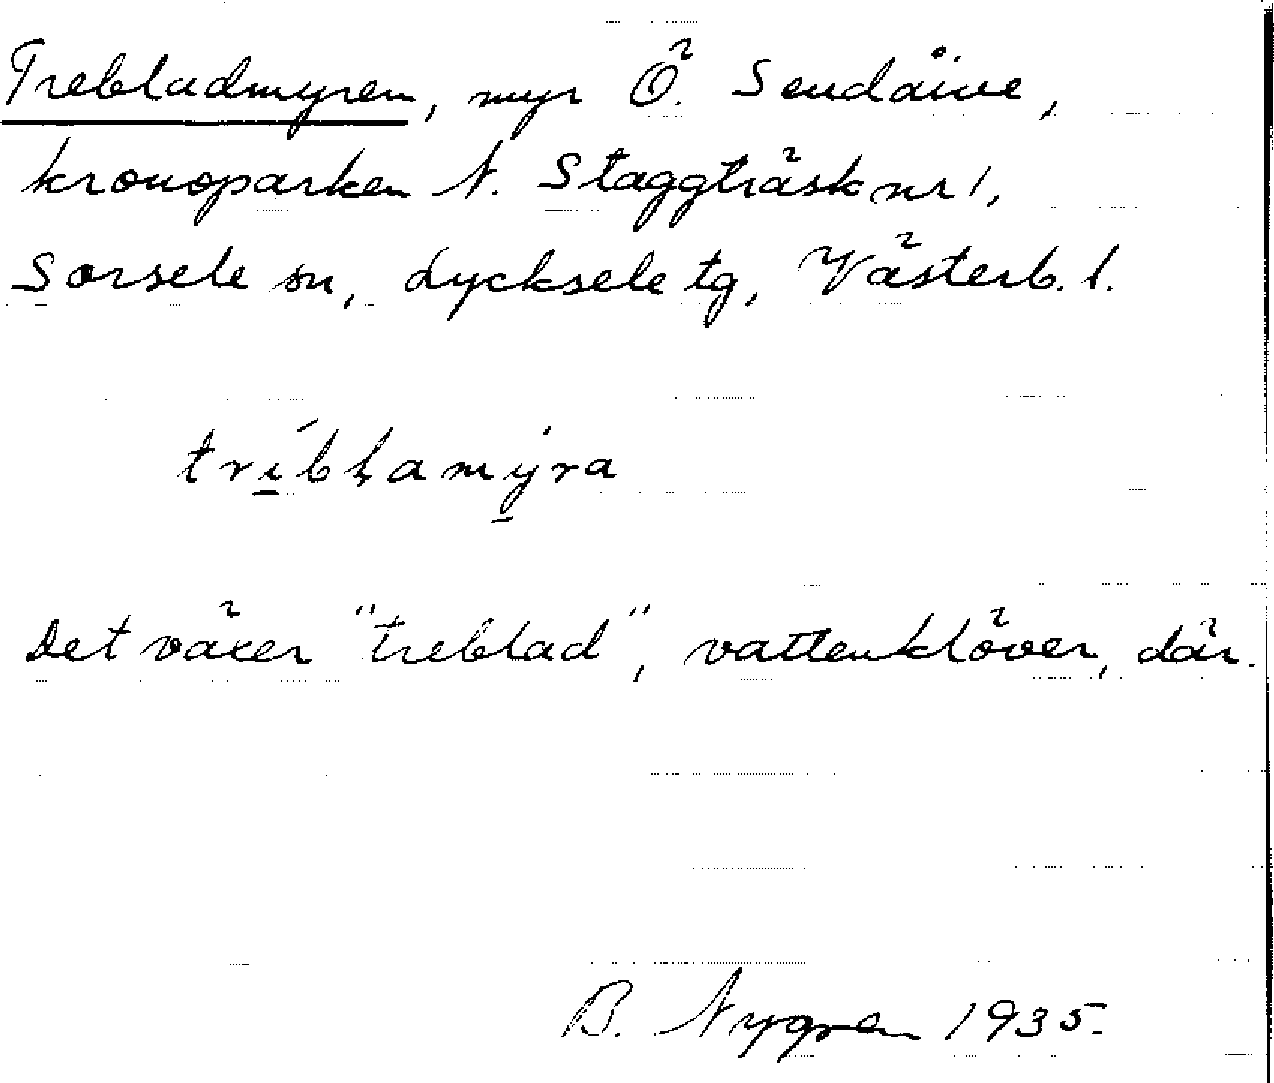 Trebladmyren, myr Ö. Sendåive,
kronoparken N. Staggträsk nr 1,
Sorsele sn, Lycksele tg, Västerb. l.
tríblamýra
Det växer "treblad", vattenklöver, där.
B. Nygren 1935.